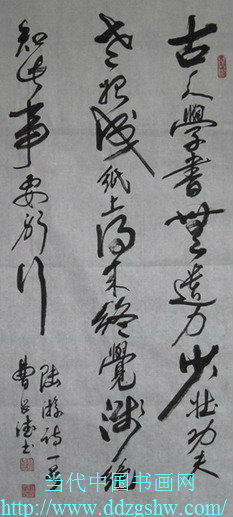 古人學書無遺力少壮功夫
老始成紙上得来終覺淺絶
知此事要躬行
陸游詩一首
曹德书
当代中国书画网
http://www.ddzgshw.com/